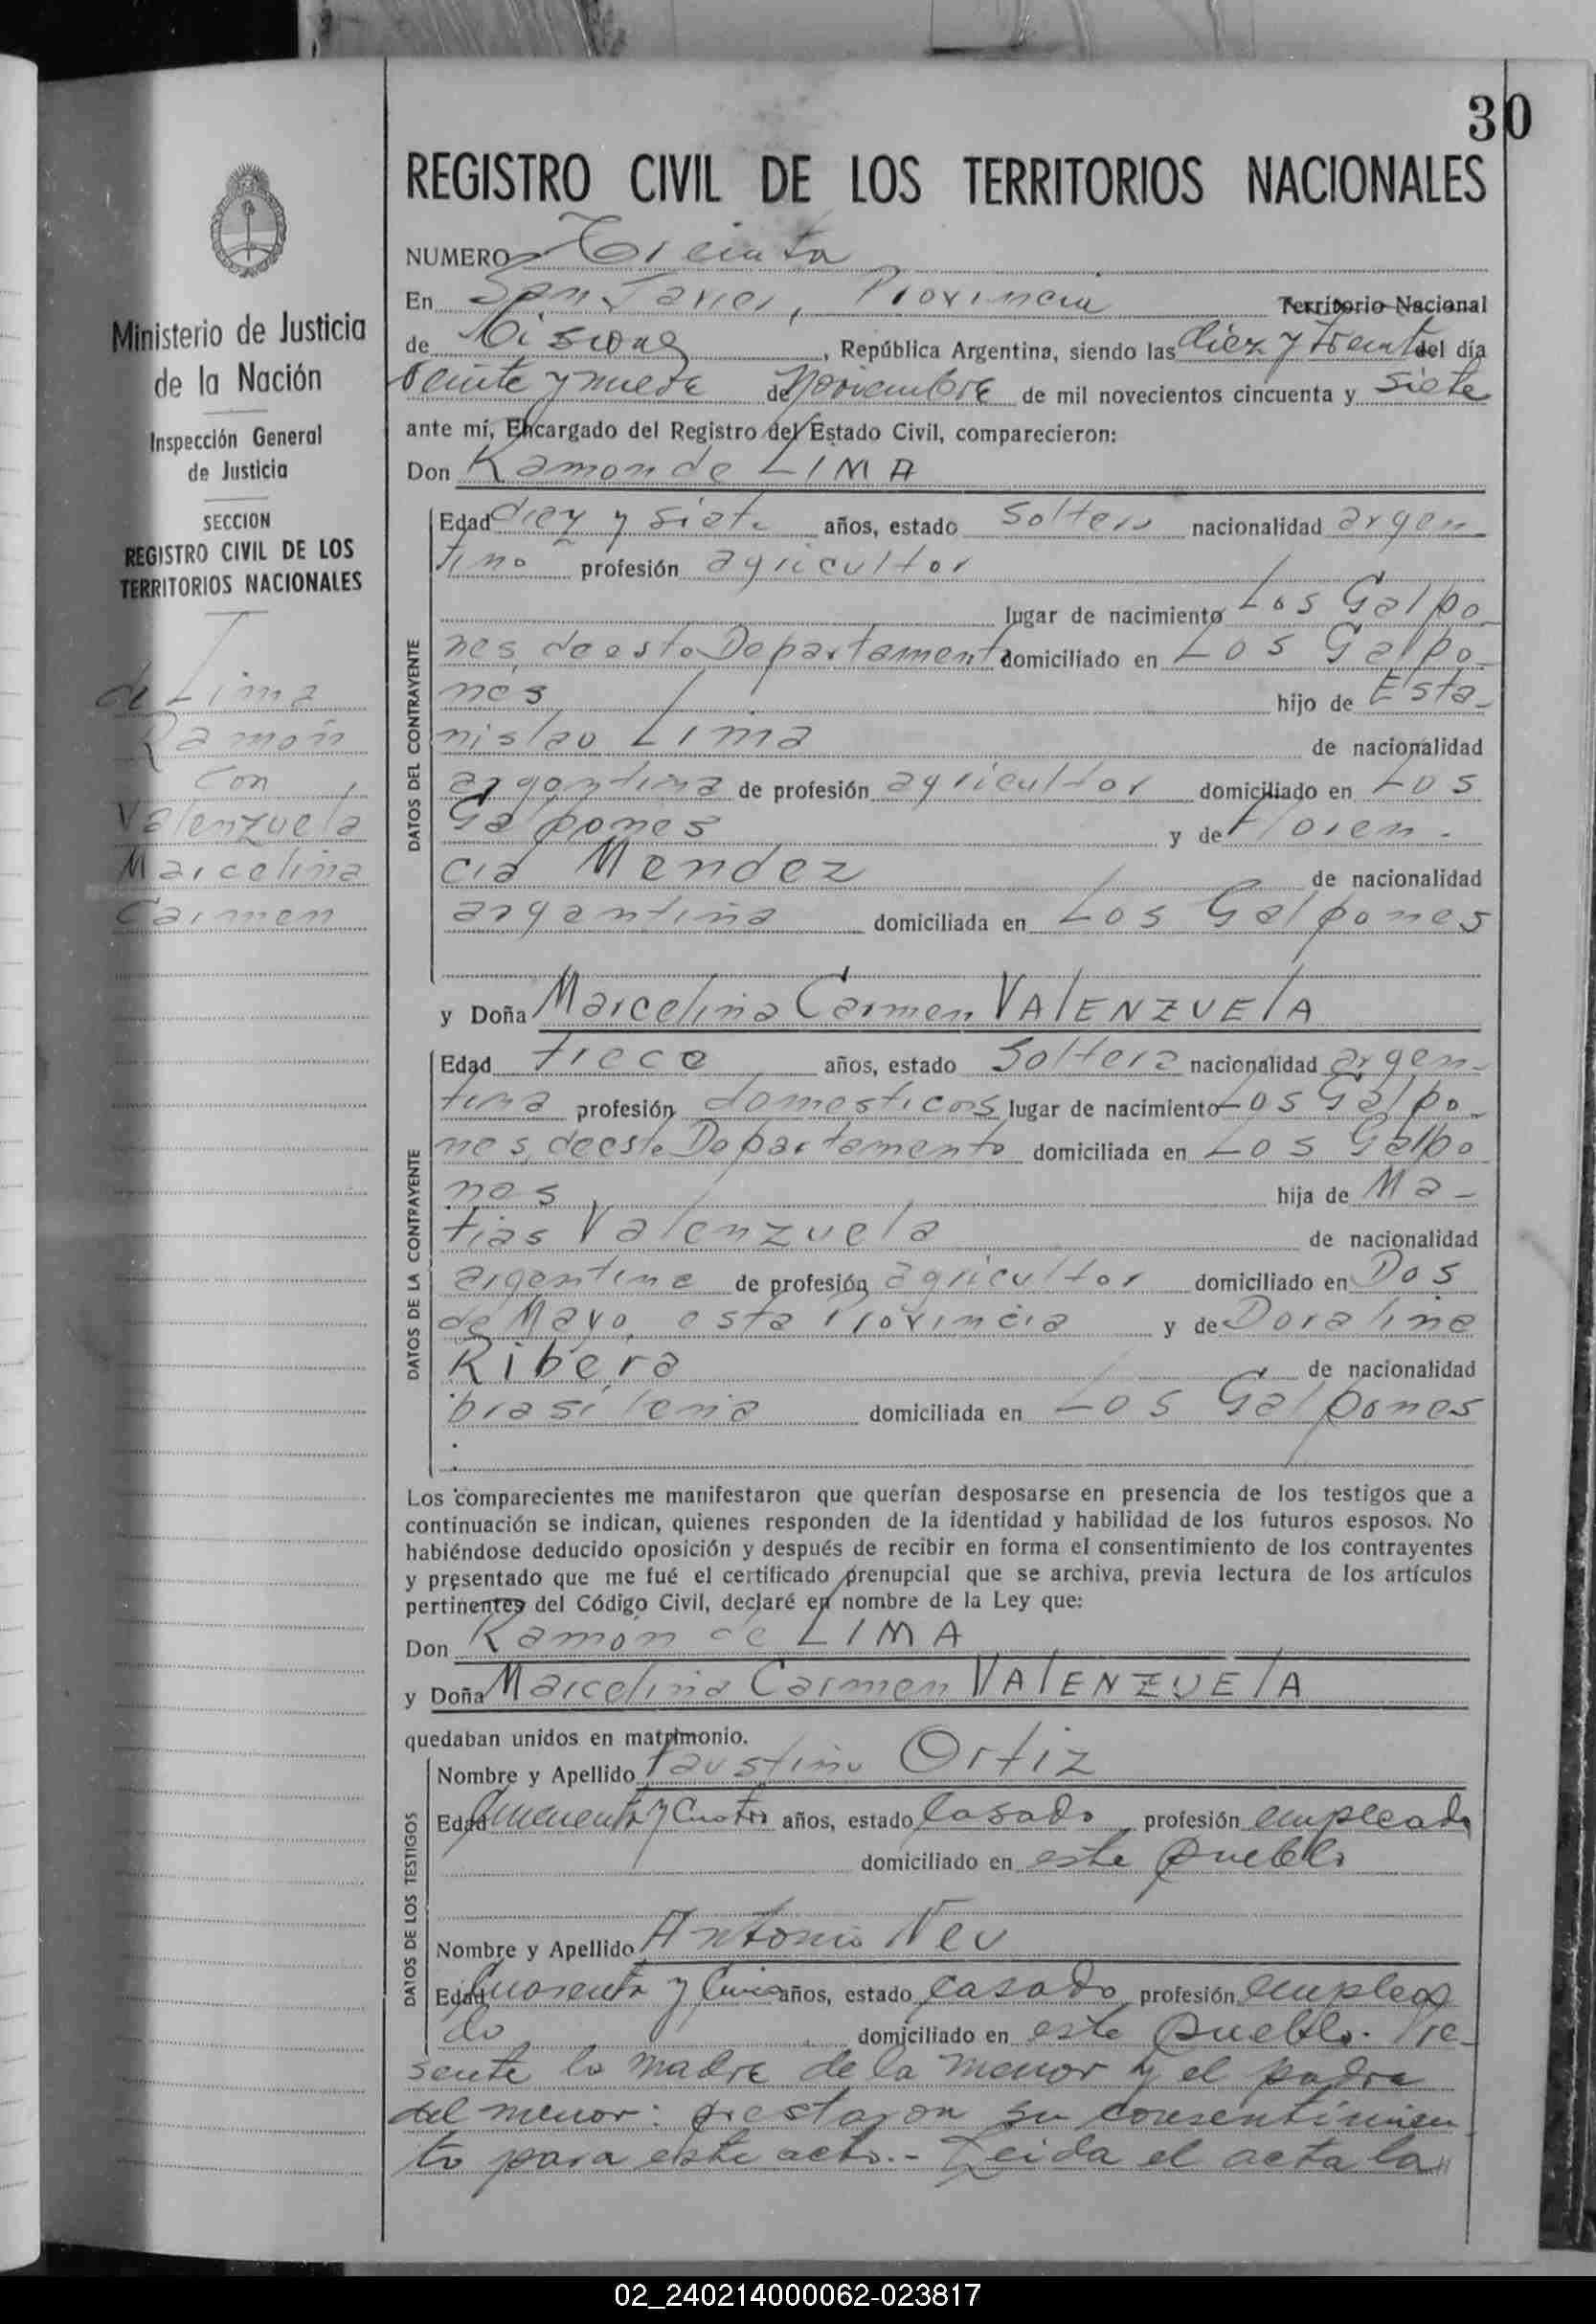 30
REGISTRO CIVIL DE LOS TERRITORIOS NACIONALES
Ministerio de Justicia
de la Nación
Inspección General
de Justicia
SECCION
REGISTRO CIVIL DE LOS
TERRITORIOS NACIONALES
de Lima
Ramón
con
Valenzuela
Marcelina
Carmen
NUMERO Treinta
En San Javier, Provincia Territorio Nacional
de Misiones, República Argentina, siendo las diez y treinta del día
veinte y nueve de noviembre de mil novecientos cincuenta y siete
ante mí, Encargado del Registro del Estado Civil, comparecieron:
Don Ramon de LIMA
DATOS DEL CONTRAYENTE
Edad diez y siete años, estado soltero nacionalidad argen-
tino profesión agricultor
lugar de nacimiento Los Galpo-
nes, de este Departamento domiciliado en Los Galpo-
nes hijo de Esta-
nislao Lima de nacionalidad
argentina de profesión agricultor domiciliado en Los
Galpones y de Floren-
cia Mendez de nacionalidad
argentina domiciliada en Los Galpones
y Doña Marcelina Carmen VAlENZUElA
DATOS DE LA CONTRAYENTE
Edad trece años, estado Soltera nacionalidad argen-
tina profesión domesticos lugar de nacimiento Los Galpo-
nes, de este Departamento domiciliada en Los Galpo
nes hija de Ma-
tias Valenzuela de nacionalidad
argentina de profesión agricultor domiciliado en Dos
de Mayo, esta Provincia y de Doralina
Ribera de nacionalidad
brasileña domiciliada en Los Galpones
Los comparecientes me manifestaron que querían desposarse en presencia de los testigos que a
continuación se indican, quienes responden de la identidad y habilidad de los futuros esposos. No
habiéndose deducido oposición y después de recibir en forma el consentimiento de los contrayentes
y presentado que me fué el certificado prenupcial que se archiva, previa lectura de los artículos
pertinentes del Código Civil, declaré en nombre de la Ley que:
Don Ramón de LIMA
y Doña Marcelina Carmen VAlENZUElA
quedaban unidos en matrimonio.
DATOS DE LOS TESTIGOS
Nombre y Apellido Faustino Ortiz
Edad Cincuenta y Cuatro años, estado Casado profesión empleado
domiciliado en este pueblo
Nombre y Apellido Antonio Neu
Edad Cuarenta y Cinco años, estado Casado profesión emplea
do domiciliado en este pueblo. Pre-
sente la madre de la menor y el padre
del menor: prestaron su consentimien
to para este acto.- Leida el acta la
02_240214000062-023817